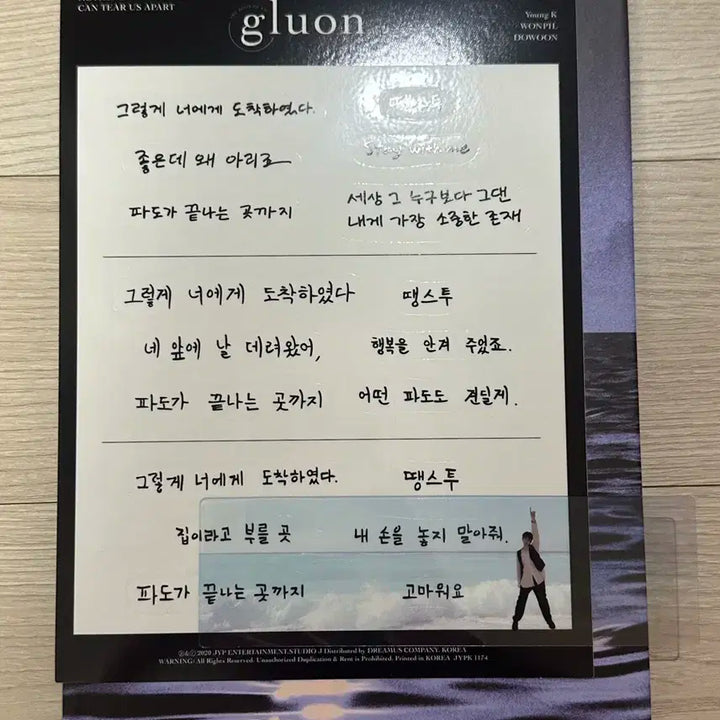 CAN TEAR US APART
gluon
Young K
WONPIL
DOWOON
그렇게 너에게 도착하였다.
땡스투
좋은데 왜 아리로
Stay with me
파도가 끝나는 곳까지
세상 그 누구보다 그댄
내게 가장 소중한 존재
그렇게 너에게 도착하였다
땡스투
네 앞에 날 데려왔어,
행복을 안겨 주었죠.
파도가 끝나는 곳까지
어떤 파도도 견딜게.
그렇게 너에게 도착하였다.
땡스투
집이라고 부를 곳
내 손을 놓지 말아줘.
파도가 끝나는 곳까지
고마워요
Ⓟ&Ⓒ 2020 JYP ENTERTAINMENT.STUDIO J Distributed by DREAMUS COMPANY. KOREA
WARNING: All Rights Reserved. Unauthorized Duplication & Rent is Prohibited. Printed in KOREA JYPK 1174